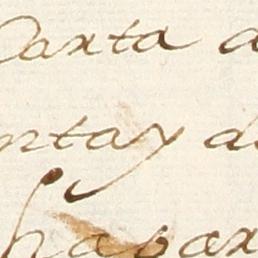 Carta d
ntay d
hapar